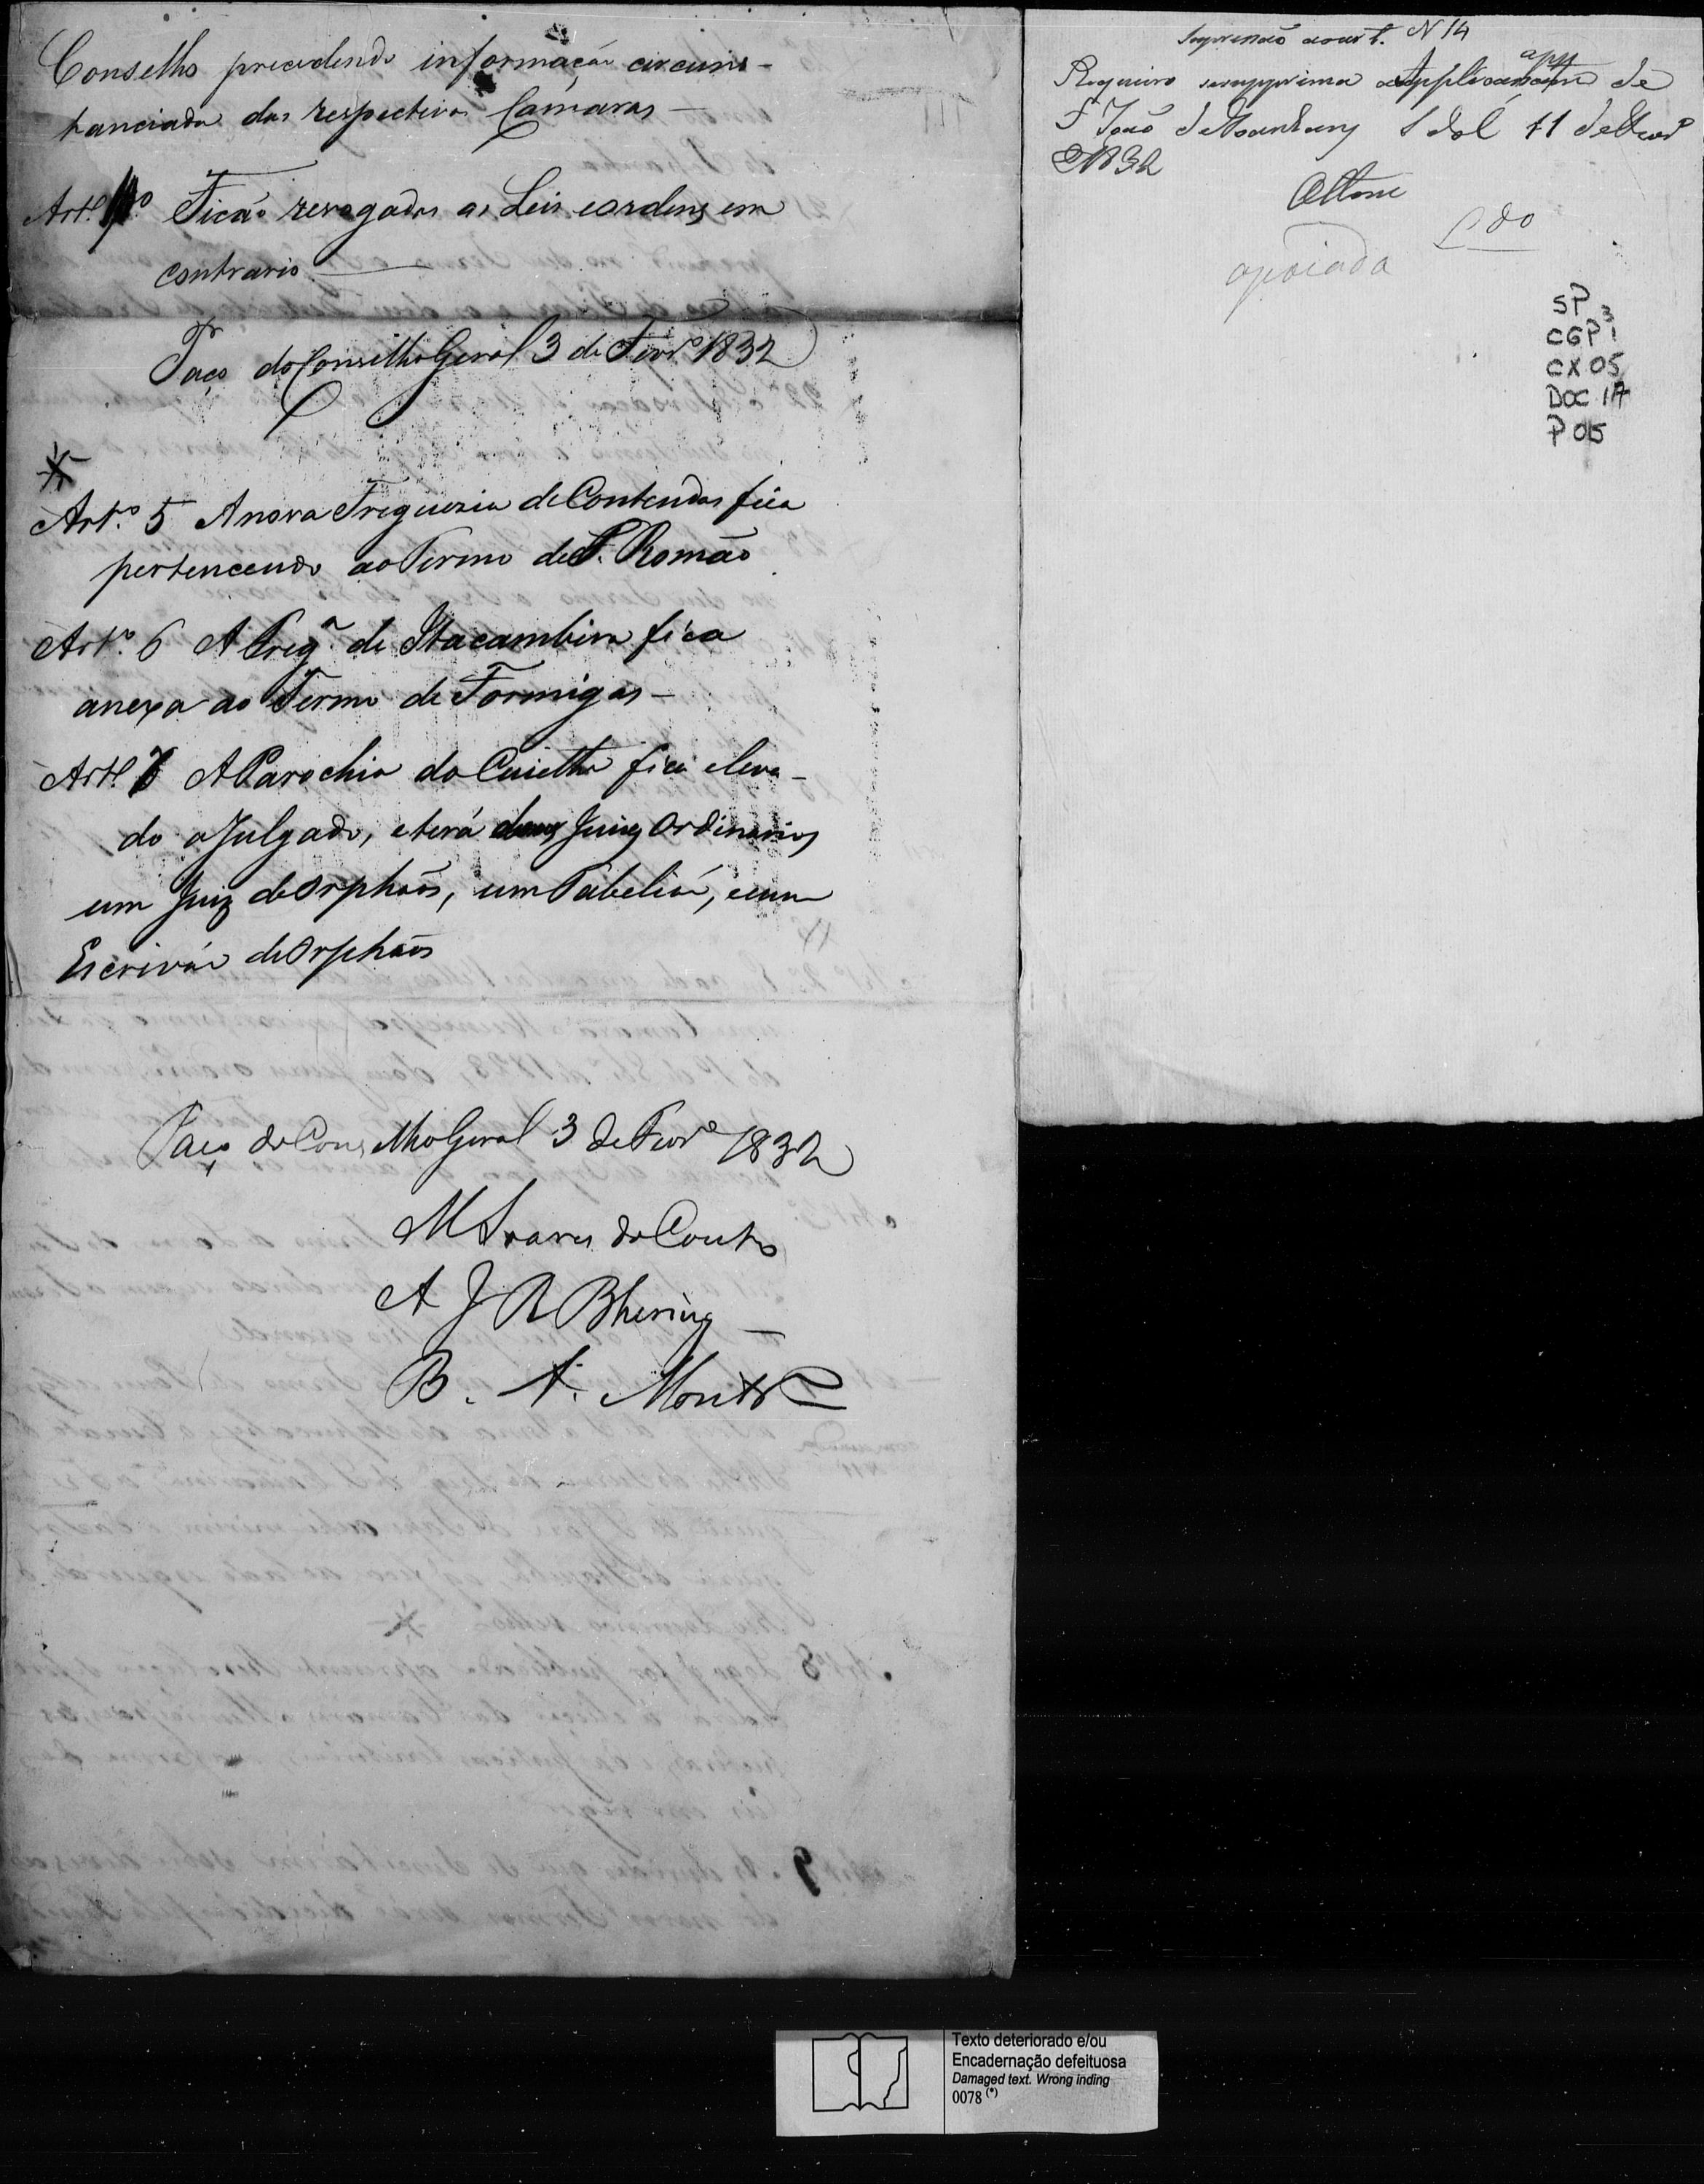 Conselho precedendo informaçaõ circuns-
tanciada das respectivas Camaras —
Artº. Ficaõ revogadas as Leis e ordens em
contrario
Paço do Conselho Geral 3 de Fevrº 1832
Artº. 5 A nova Freguezia de Contendas fica
pertencendo ao Termo de S. Romaõ
Artº. 6 A Fregª de Itacambira fica
anexa ao Termo de Formigas —
Artº. 7 A Parochia do Cuiethe fica eleva-
da a Julgado, e terá dous Juizes Ordinarios
um Juiz de Orphaõs, um Tabeliaõ, e um
Escrivaõ de Orphaõs
Paço do Conselho Geral 3 de Fevrº 1832
M Soares do Couto
A J R Bhering —
B. A. Montrº
Nº 14
Requeiro se supprima
app
de
S João d 11 de Fevrº
1832
Ottoni
apoiada
SP
CGP 3 1
CX 05
DOC 17
P 05
Texto deteriorado e/ou
Encadernação defeituosa
Damaged text. Wrong inding
0078 (*)